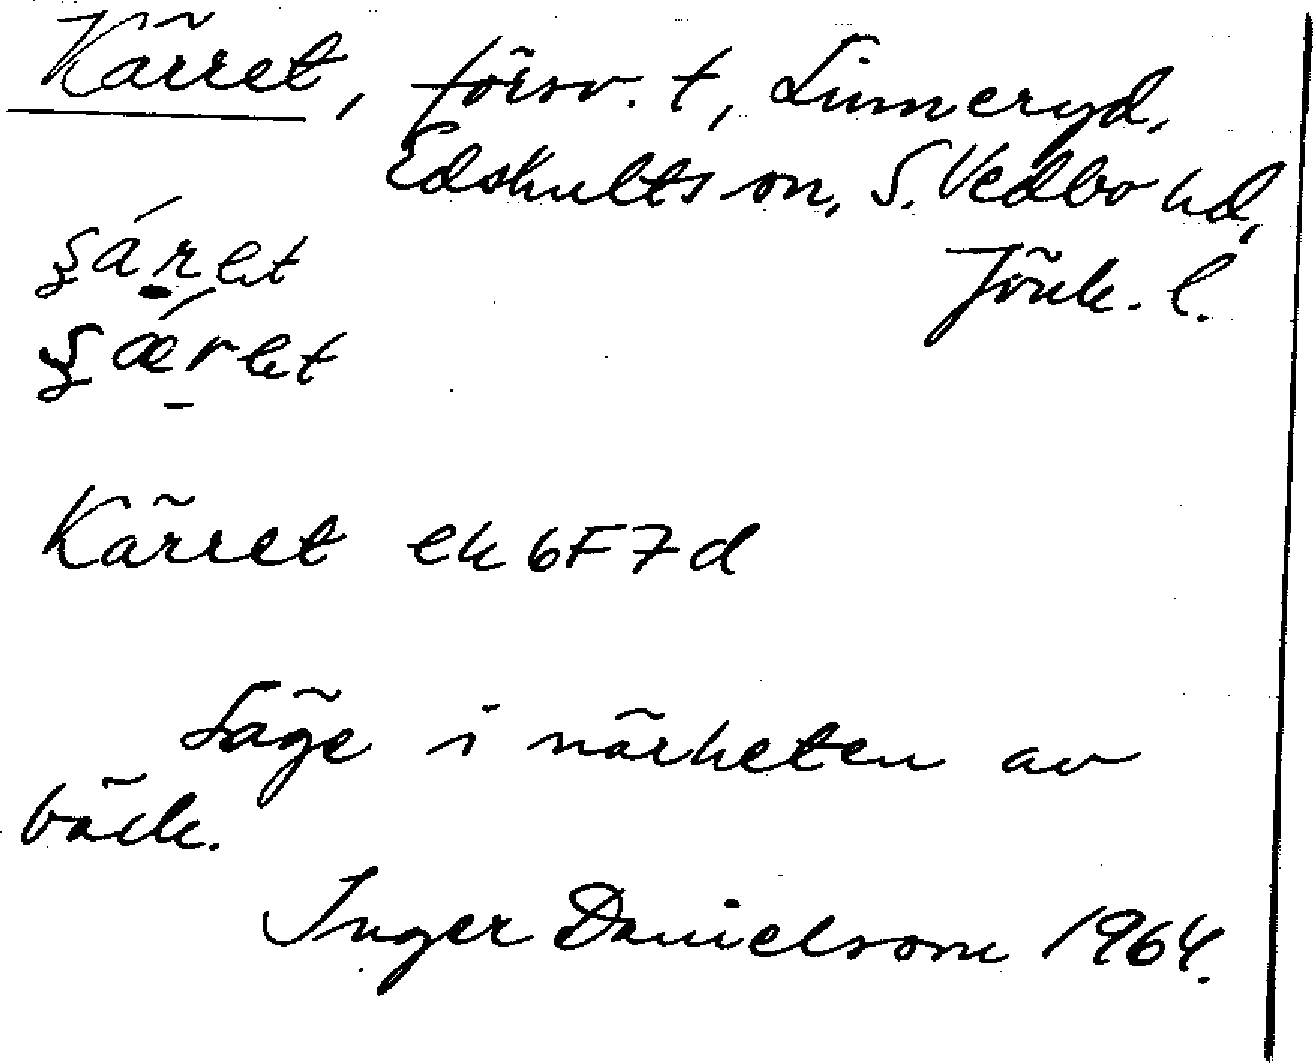 Kärret, försv. t, Limmeryd,
Edshults sn, S. Vedbo hd,
Jönk. l.
Kärret ek 6F7d
Läge i närheten av
bäck.
Inger Danielsson 1964.